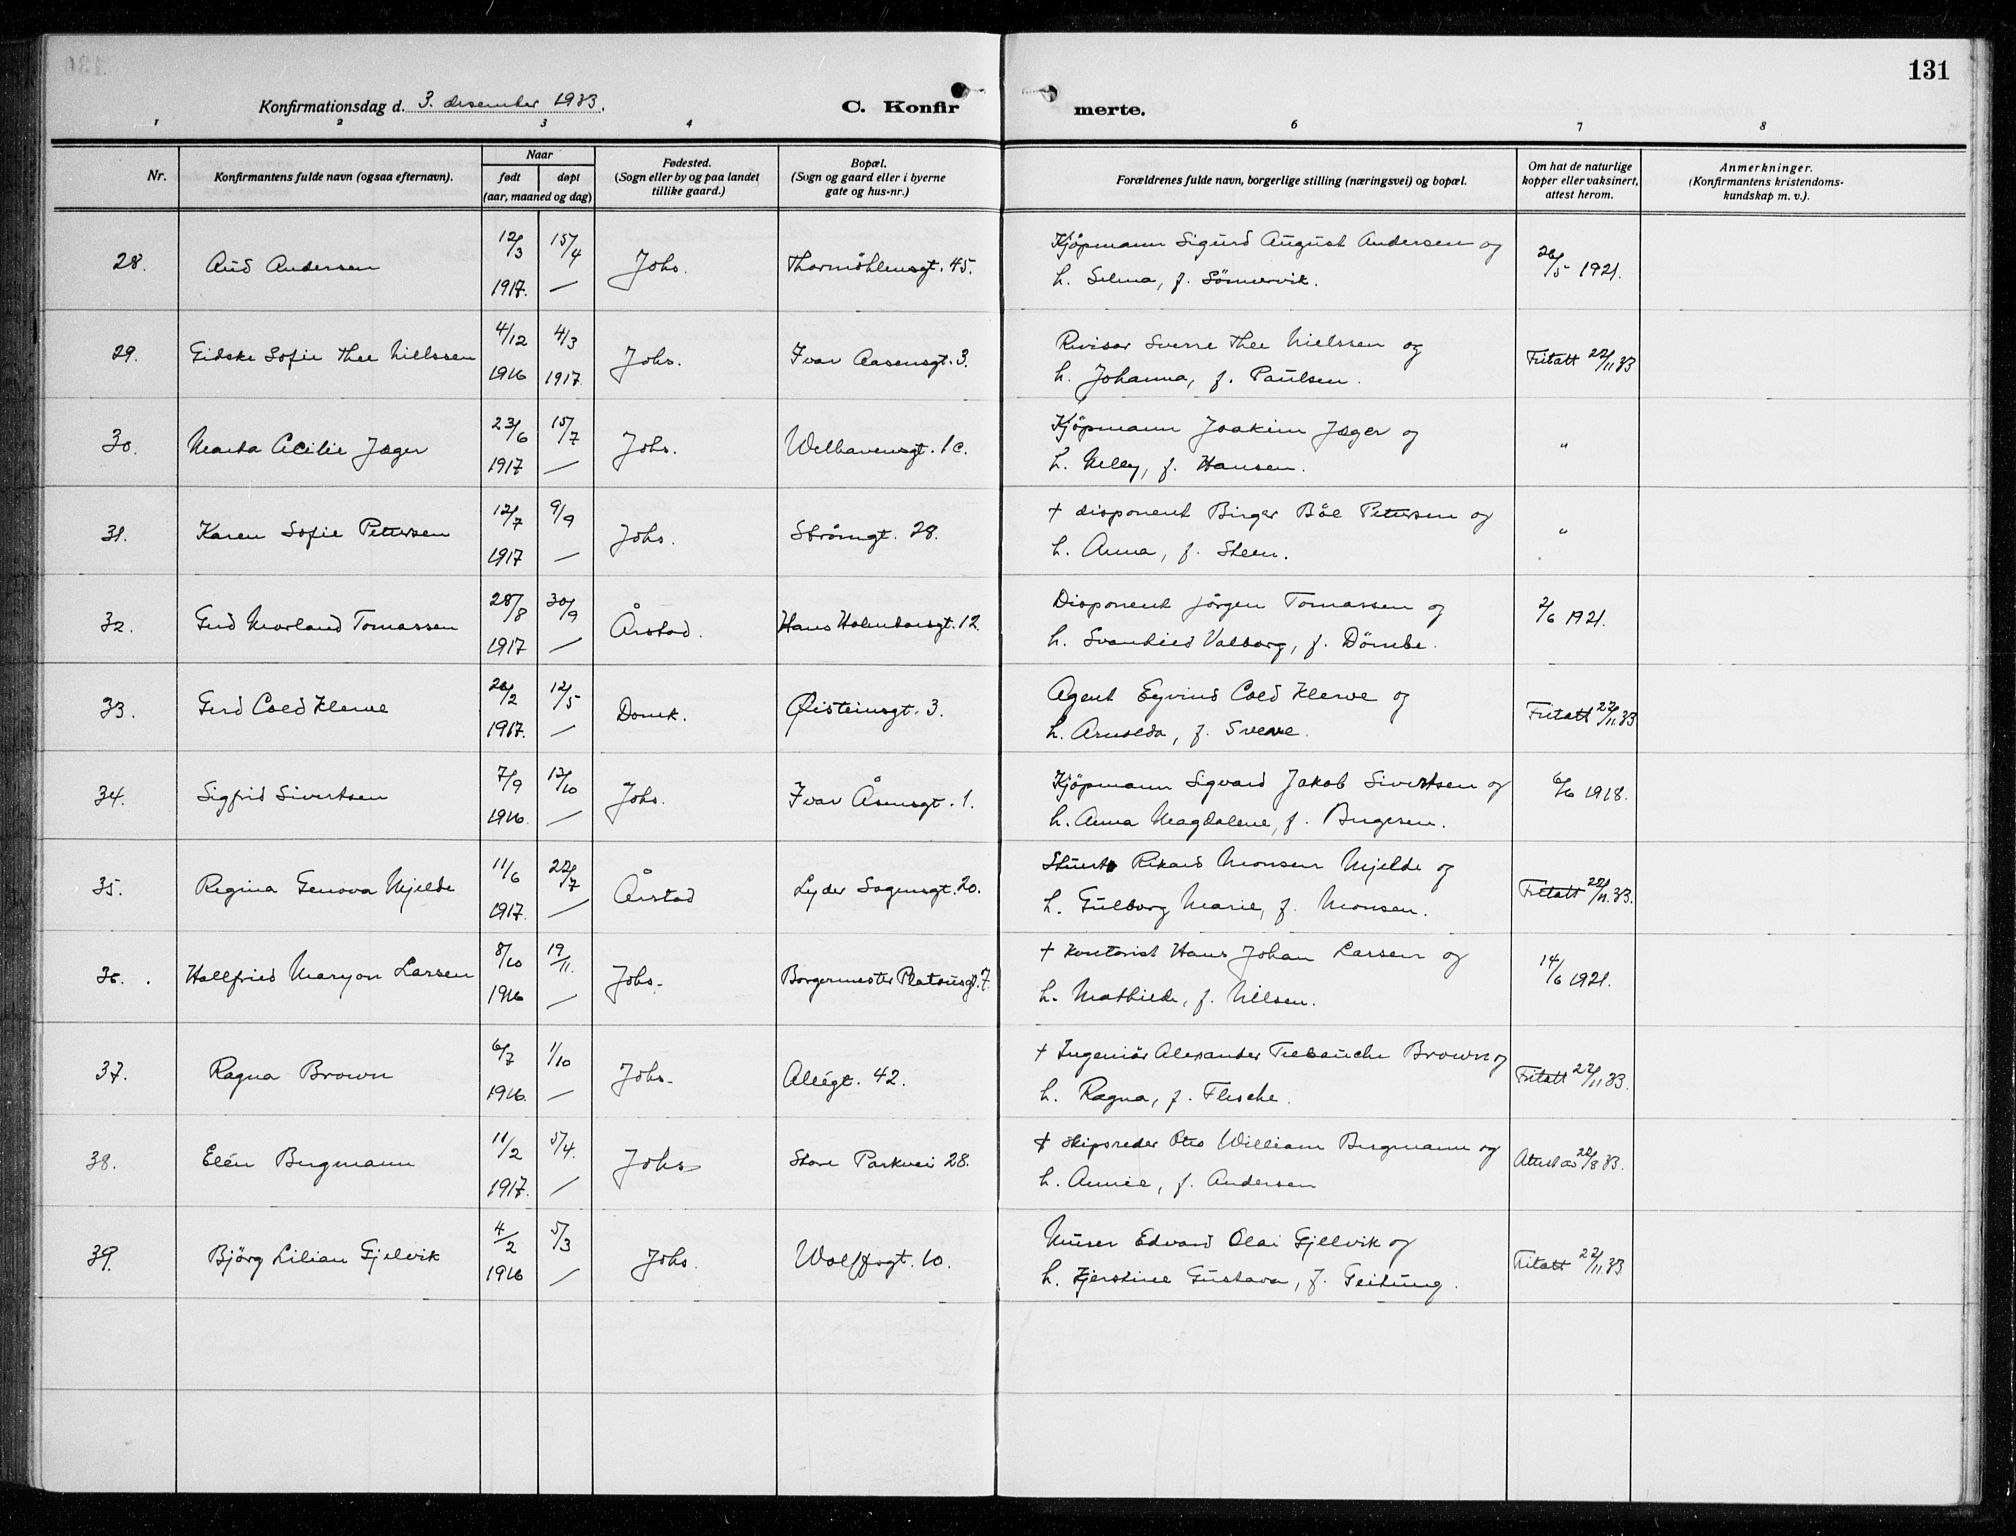 131
Konfirmationsdag d. 3. desember 1933.
C. Konfirmerte.
1 2 3 4 6 7 8
Nr.
Konfirmantens fulde navn (ogsaa efternavn).
Naar
født
døpt
(aar, maaned og dag)
Fødested.
(Sogn eller by og paa landet
tillike gaard.)
Bopæl.
(Sogn og gaard eller i byerne
gate og hus-nr.)
Forældrenes fulde navn, borgerlige stilling (næringsvei) og bopæl.
Om hat de naturlige
kopper eller vaksinert,
attest herom.
Anmerkninger.
(Konfirmantens kristendoms-
kundskap m. v.).
28. Aud Andersen 12/3 1917. 15/4 — Johs. Thormöhlensgt. 45. Kjøpmann Sigurd August Andersen og
h. Selma, f. Sönnervik. 26/5 1921.
29. Gidske Sofie Thee Nielssen 4/12 1916 4/3 1917. Johs. Ivar Aasensgt. 3. Revisor Sverre Thee Nielssen og
h. Johanna, f. Paulsen. Fritatt 22/11 33
30. Marta Cecilie Jæger 23/6 1917 15/7 — Johs. Welhavensgt. 1c. Kjøpmann Joakim Jæger og
h. Nelly, f. Hansen. "
31. Karen Sofie Pettersen 12/7 1917 9/9 — Johs. Strömgt. 28. † disponent Birger Böe Petersen og
h. Anna, f. Steen. "
32. Gerd Morland Tomassen 28/8 1917 30/9 — Årstad. Hans Holmboesgt. 12. Disponent Jörgen Tomassen og
h. Svanhild Valborg, f. 2/6 1921.
33. Gerd Cold Klerve 1917. 12/5 — Domk. Øisteinsgt. 3. Agent Eyvind Cold Klerve og
h. Arnolda, f. Fritatt 22/11 33
34. Sigfrid Sivertsen 7/9 1916. — Johs. Ivar Åsensgt. 1. Kjøpmann Sigvard Jakob Sivertsen og
h. Anna Magdalene, f. Birgesen. 6/6 1918.
35. Regina Genova Mjelde 11/6 1917. 22/7 — Årstad Lyder Sagensgt. 20. Stuert Rikard Monsen Mjelde og
h. Gulborg Marie, f. Monsen. Fritatt 22/11 33.
36. Hallfrid Maryon Larsen 8/10 1916 19/11. — Johs. Borgermester Platousgt. 7. † Kontorist Hans Johan Larsen og
h. Mathilde, f. Nilsen. 14/6 1921.
37. Ragna Brown 6/7 1916. 1/10 — Johs. Allégt. 42. † Ingeniör Alexander Brown og
h. Ragna, f. Flesche. Fritatt 22/11 33.
38. Elén Bergmann 11/2 1917. 5/4. — Johs Store Parkvei 28. † Skipsreder Otto William Bergmann og
h. Annie, f. Andersen 33.
39. Björg Lilian Gjelvik 4/2 1916 5/3 — Johs. Wolffsgt. 10. Murer Edvard Olai Gjellvik og
h. Kjerstine Gustava, f. Geitung. Fritatt 22/11 33